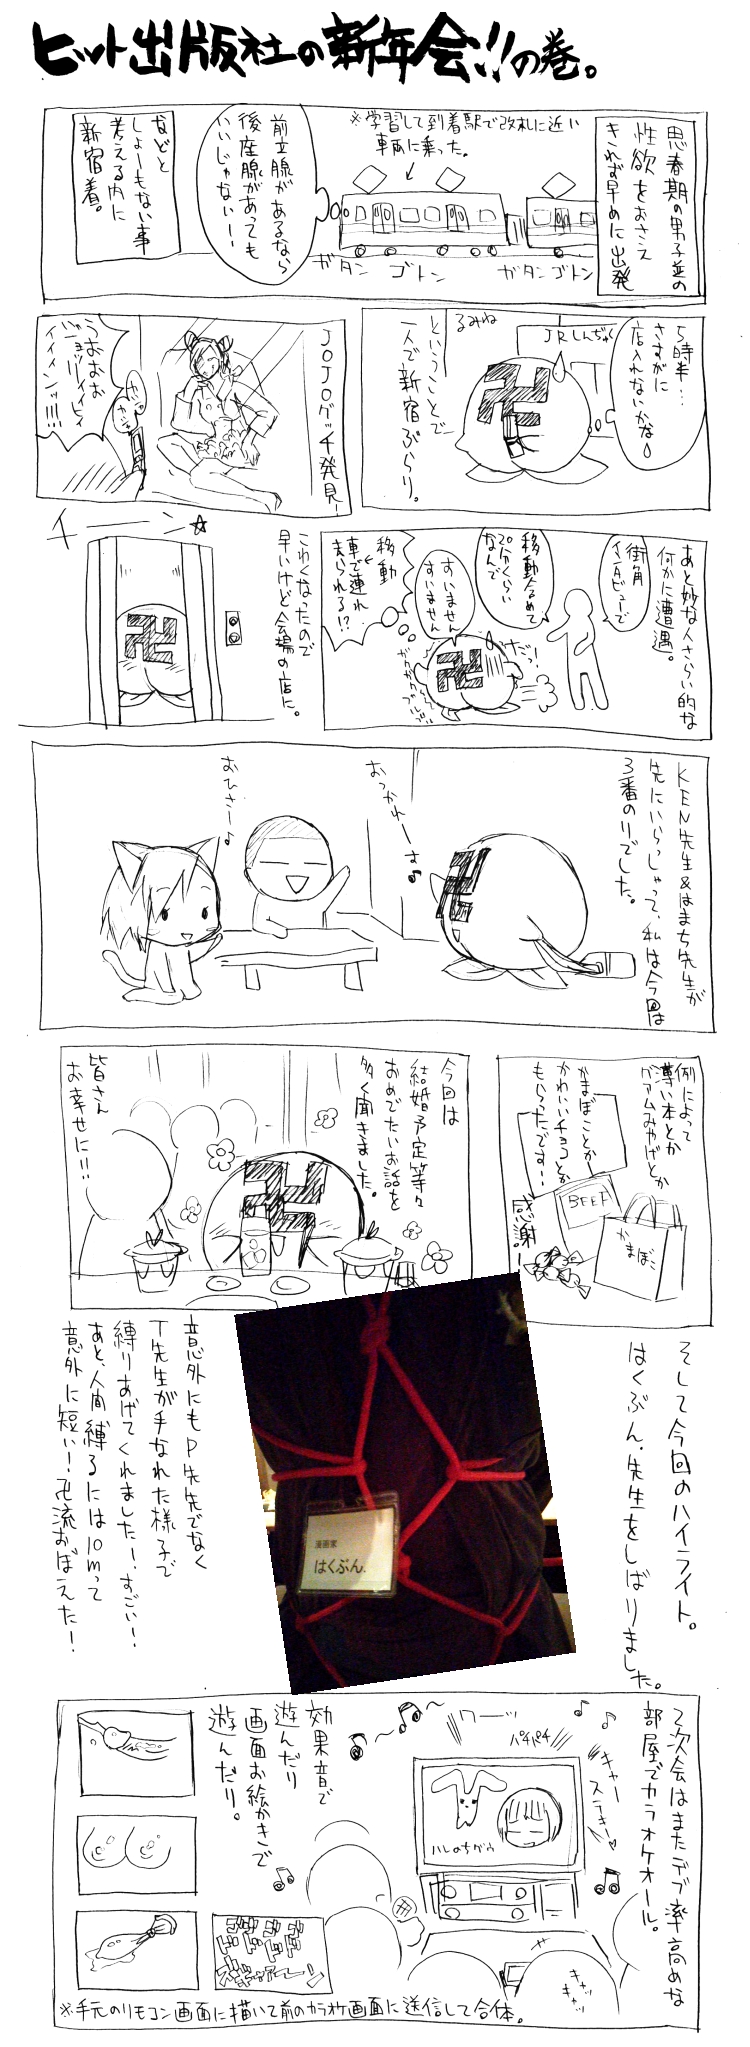 ヒット出版社の新年会!!の巻。
思春期の男子並の
性欲をおさえ
きれず早めに出発
※学習して到着駅で改札に近い
車両に乗った。
ガタン ゴトン
ガタンゴトン
前立腺があるなら
後座腺があっても
いいじゃない!
などと
しょーもない事
考える内に
新宿着。
5時半…
さすがに
店入れないかな
JRしんぢゅく
るみね
ということで
一人で新宿ぶらり。
JOJOグッチ発見!
うおおお
あと妙な人さらい的な
何かに遭遇。
街角
インタビューで
移動含めて
20分くらい
なんで
すいません
すいません
だっ!
移動
車で連れ
去られる!?
こわくなったので
早いけど会場の店に。
チーーーン☆
KEN先生&はまち先生が
先にいらっしゃって、私は今回は
3番のりでした。
おつかれーさ♪
おひさー♪
例によって
薄い本とか
グァムみやげとか
かまぼことか
かわいいチョコとか
もらったです!
感謝!
BEEF
かまぼこ
今回は
結婚予定等々
おめでたいお話を
多く聞きました。
皆さん
お幸せに!!
そして今回のハイライト。
はくぶん.先生をしばりました。
漫画家
はくぶん.
意外にもP先先でなく
T先生が手なれた様子で
縛りあげてくれました!すごい!
あと、人間縛るには10mって
意外に短い!卍流おぼえた!
2次会はまたデブ率高めな
部屋でカラオケオール。
キャー
ステキ♥
ワーッ
パチパチ
ハレのちグゥ
キャッ
キャッ
効果音で
遊んだり
画面お絵かきで
遊んだり。
※手元のリモコン画面に描いて前のカラオケ画面に送信して合体。